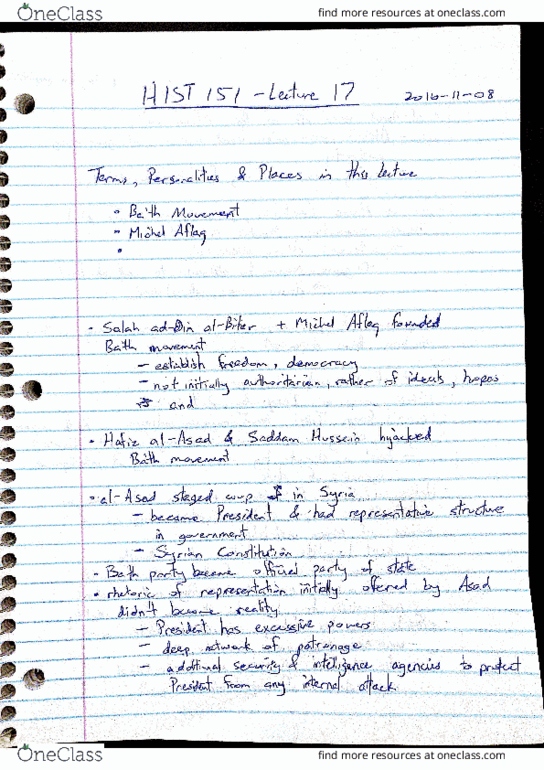 OneClass
find more resources at oneclass.com
HIST 151 - Lecture 17
2016-11-08
Terms, Personalities & Places in this lecture
• Ba'th Movement
- Michel Aflaq
•
• Salah ad-Din al-Biter + Michel Aflaq founded
Bath movement
- establish freedom, democracy
- not initially authoritarian, rather of ideals, hopes
and
• Hafiz al-Asad & Saddam Hussein hijacked
Bath movement
• al-Asad staged coup in Syria
- became President & had representative structure
in government
- Syrian Constitution
• Bath party became official party of state
• rhetoric of representation initially offered by Asad
didn't become reality
- President has excessive powers
- deep network of patronage
- additional security & intelligence agencies to protect
President from any internal attack.
OneClass
find more resources at oneclass.com